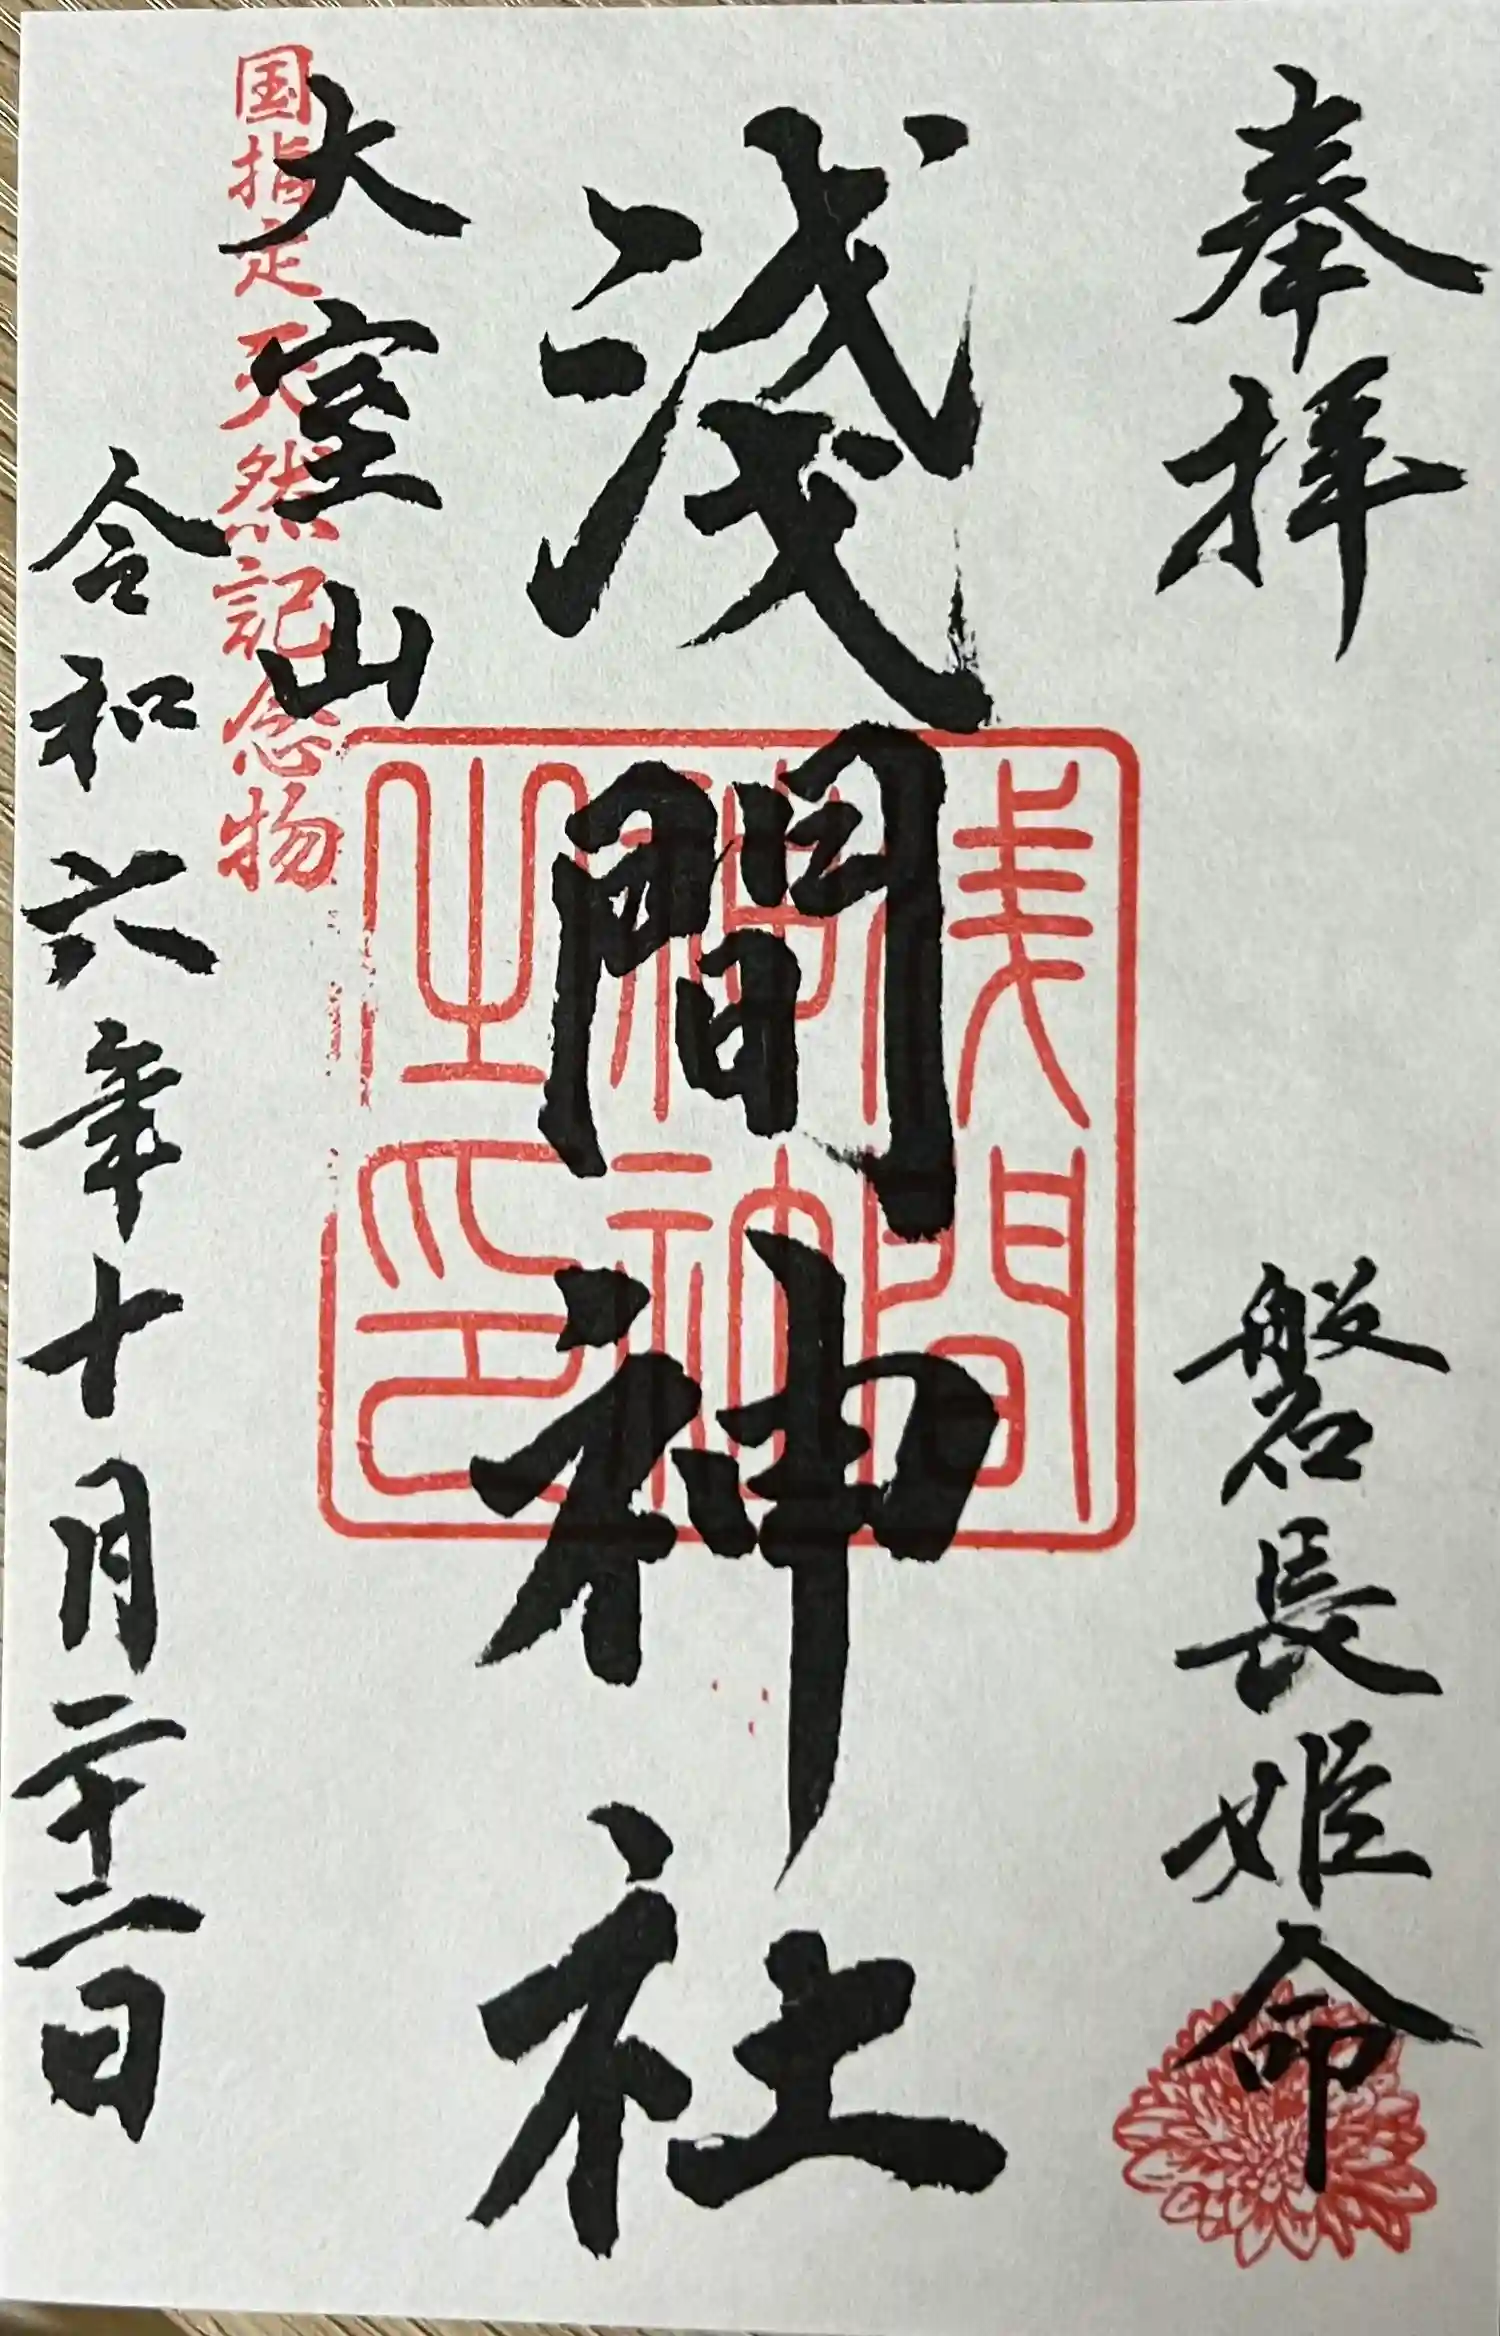 奉拝
磐長姫命
淺間神社
浅間神社之印
大室山
国指定天然記念物
令和六年十月二十二日